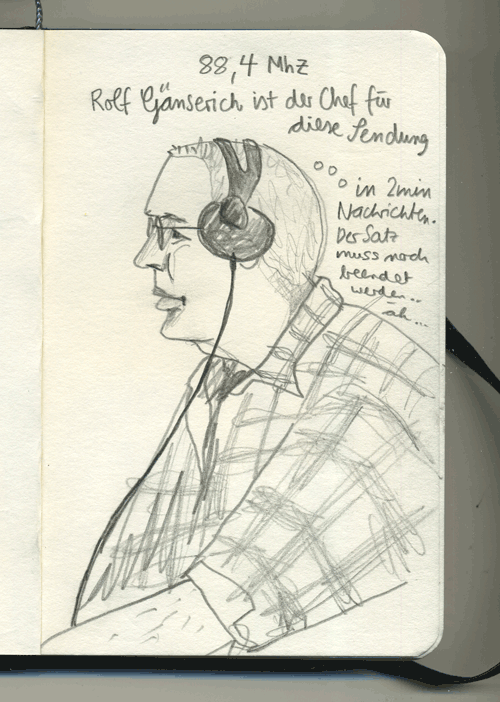 88,4 MHz
Rolf Gänserich ist der Chef für
diese Sendung
in 2min
Nachrichten.
Der Satz
muss noch
beendet
werden..
äh...